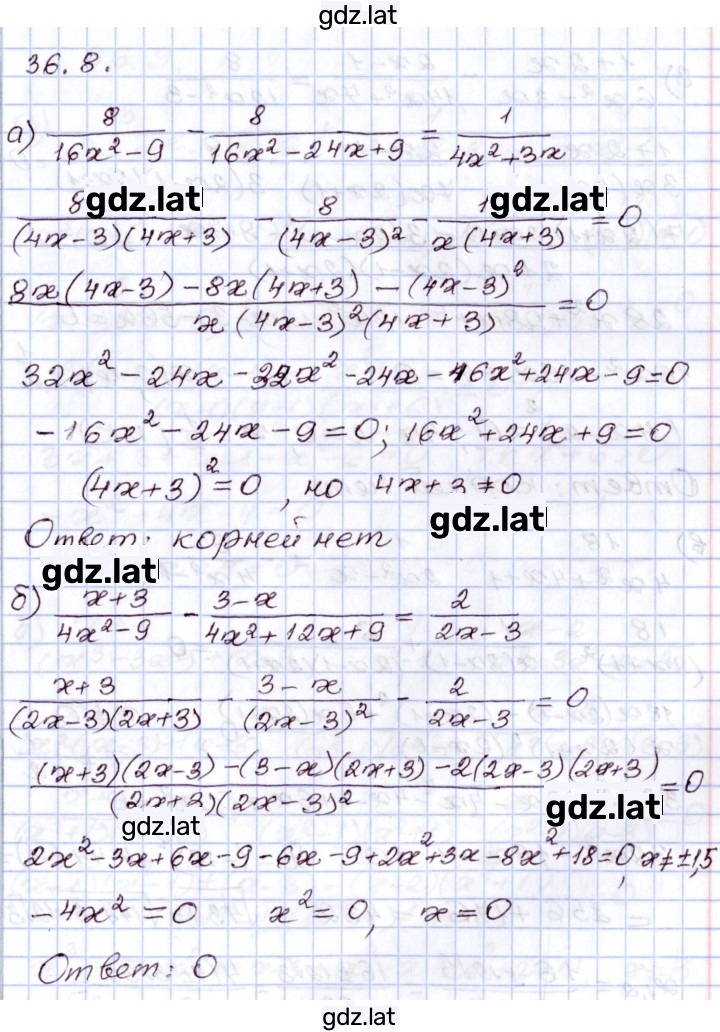 gdz.lat
36.8.
а) 8/(16x²-9) - 8/(16x²-24x+9) = 1/(4x²+3x)
gdz.lat gdz.lat
8/((4x-3)(4x+3)) - 8/(4x-3)² - 1/(x(4x+3)) = 0
(8x(4x-3) - 8x(4x+3) - (4x-3)²)/(x(4x-3)²(4x+3)) = 0
32x² - 24x - 32x² - 24x - 16x² + 24x - 9 = 0
-16x² - 24x - 9 = 0; 16x² + 24x + 9 = 0
(4x+3)² = 0, но 4x+3 ≠ 0
gdz.lat
Ответ: корней нет
gdz.lat
б) (x+3)/(4x²-9) - (3-x)/(4x²+12x+9) = 2/(2x-3)
(x+3)/((2x-3)(2x+3)) - (3-x)/(2x-3)² - 2/(2x-3) = 0
((x+3)(2x-3) - (3-x)(2x+3) - 2(2x-3)(2x+3))/((2x+3)(2x-3)²) = 0
gdz.lat gdz.lat
2x² - 3x + 6x - 9 - 6x - 9 + 2x² + 3x - 8x² + 18 = 0, x ≠ ±1,5
-4x² = 0 x² = 0, x = 0
Ответ: 0
gdz.lat